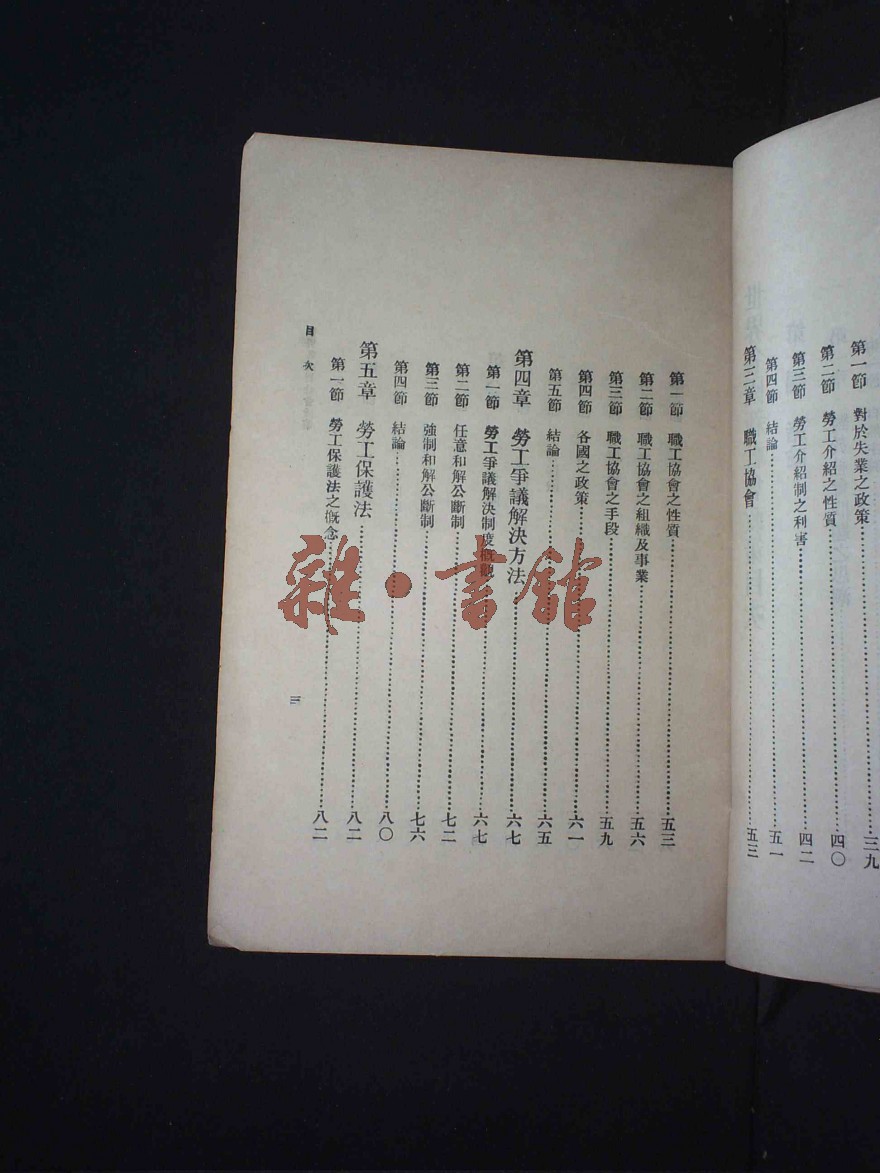 第一節　對於失業之政策……三九
第二節　勞工介紹之性質……四〇
第三節　勞工介紹制之利害……四二
第四節　結論……五一
第三章　職工協會……五三
第一節　職工協會之性質……五三
第二節　職工協會之組織及事業……五六
第三節　職工協會之手段……五九
第四節　各國之政策……六一
第五節　結論……六五
第四章　勞工爭議解決方法……六七
第一節　勞工爭議解決制度概觀……六七
第二節　任意和解公斷制……七二
第三節　強制和解公斷制……七六
第四節　結論……八〇
第五章　勞工保護法……八二
第一節　勞工保護法之概念……八二
目次
三
雜·書館